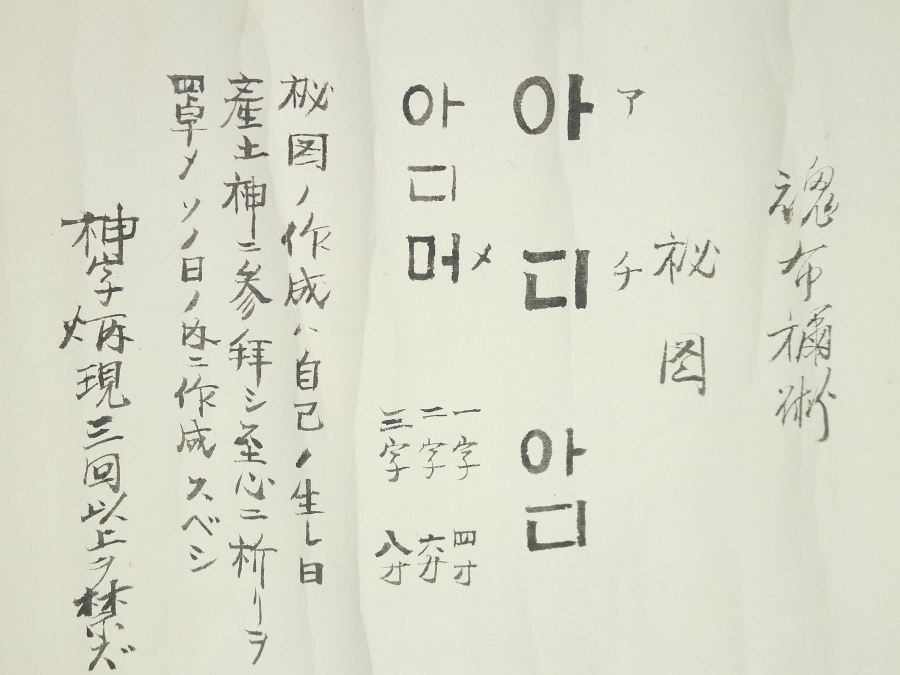 魂布禰術
秘図
ア チ
아 디 아디
メ
아디머
一字 四寸
二字 六寸
三字 八寸
秘図ノ作成ハ自己ノ生レ日
産土神ニ参拝シ至心ニ祈リヲ
罩メソノ日ノ内ニ作成スベシ
神字炳現三回以上ヲ禁ズ